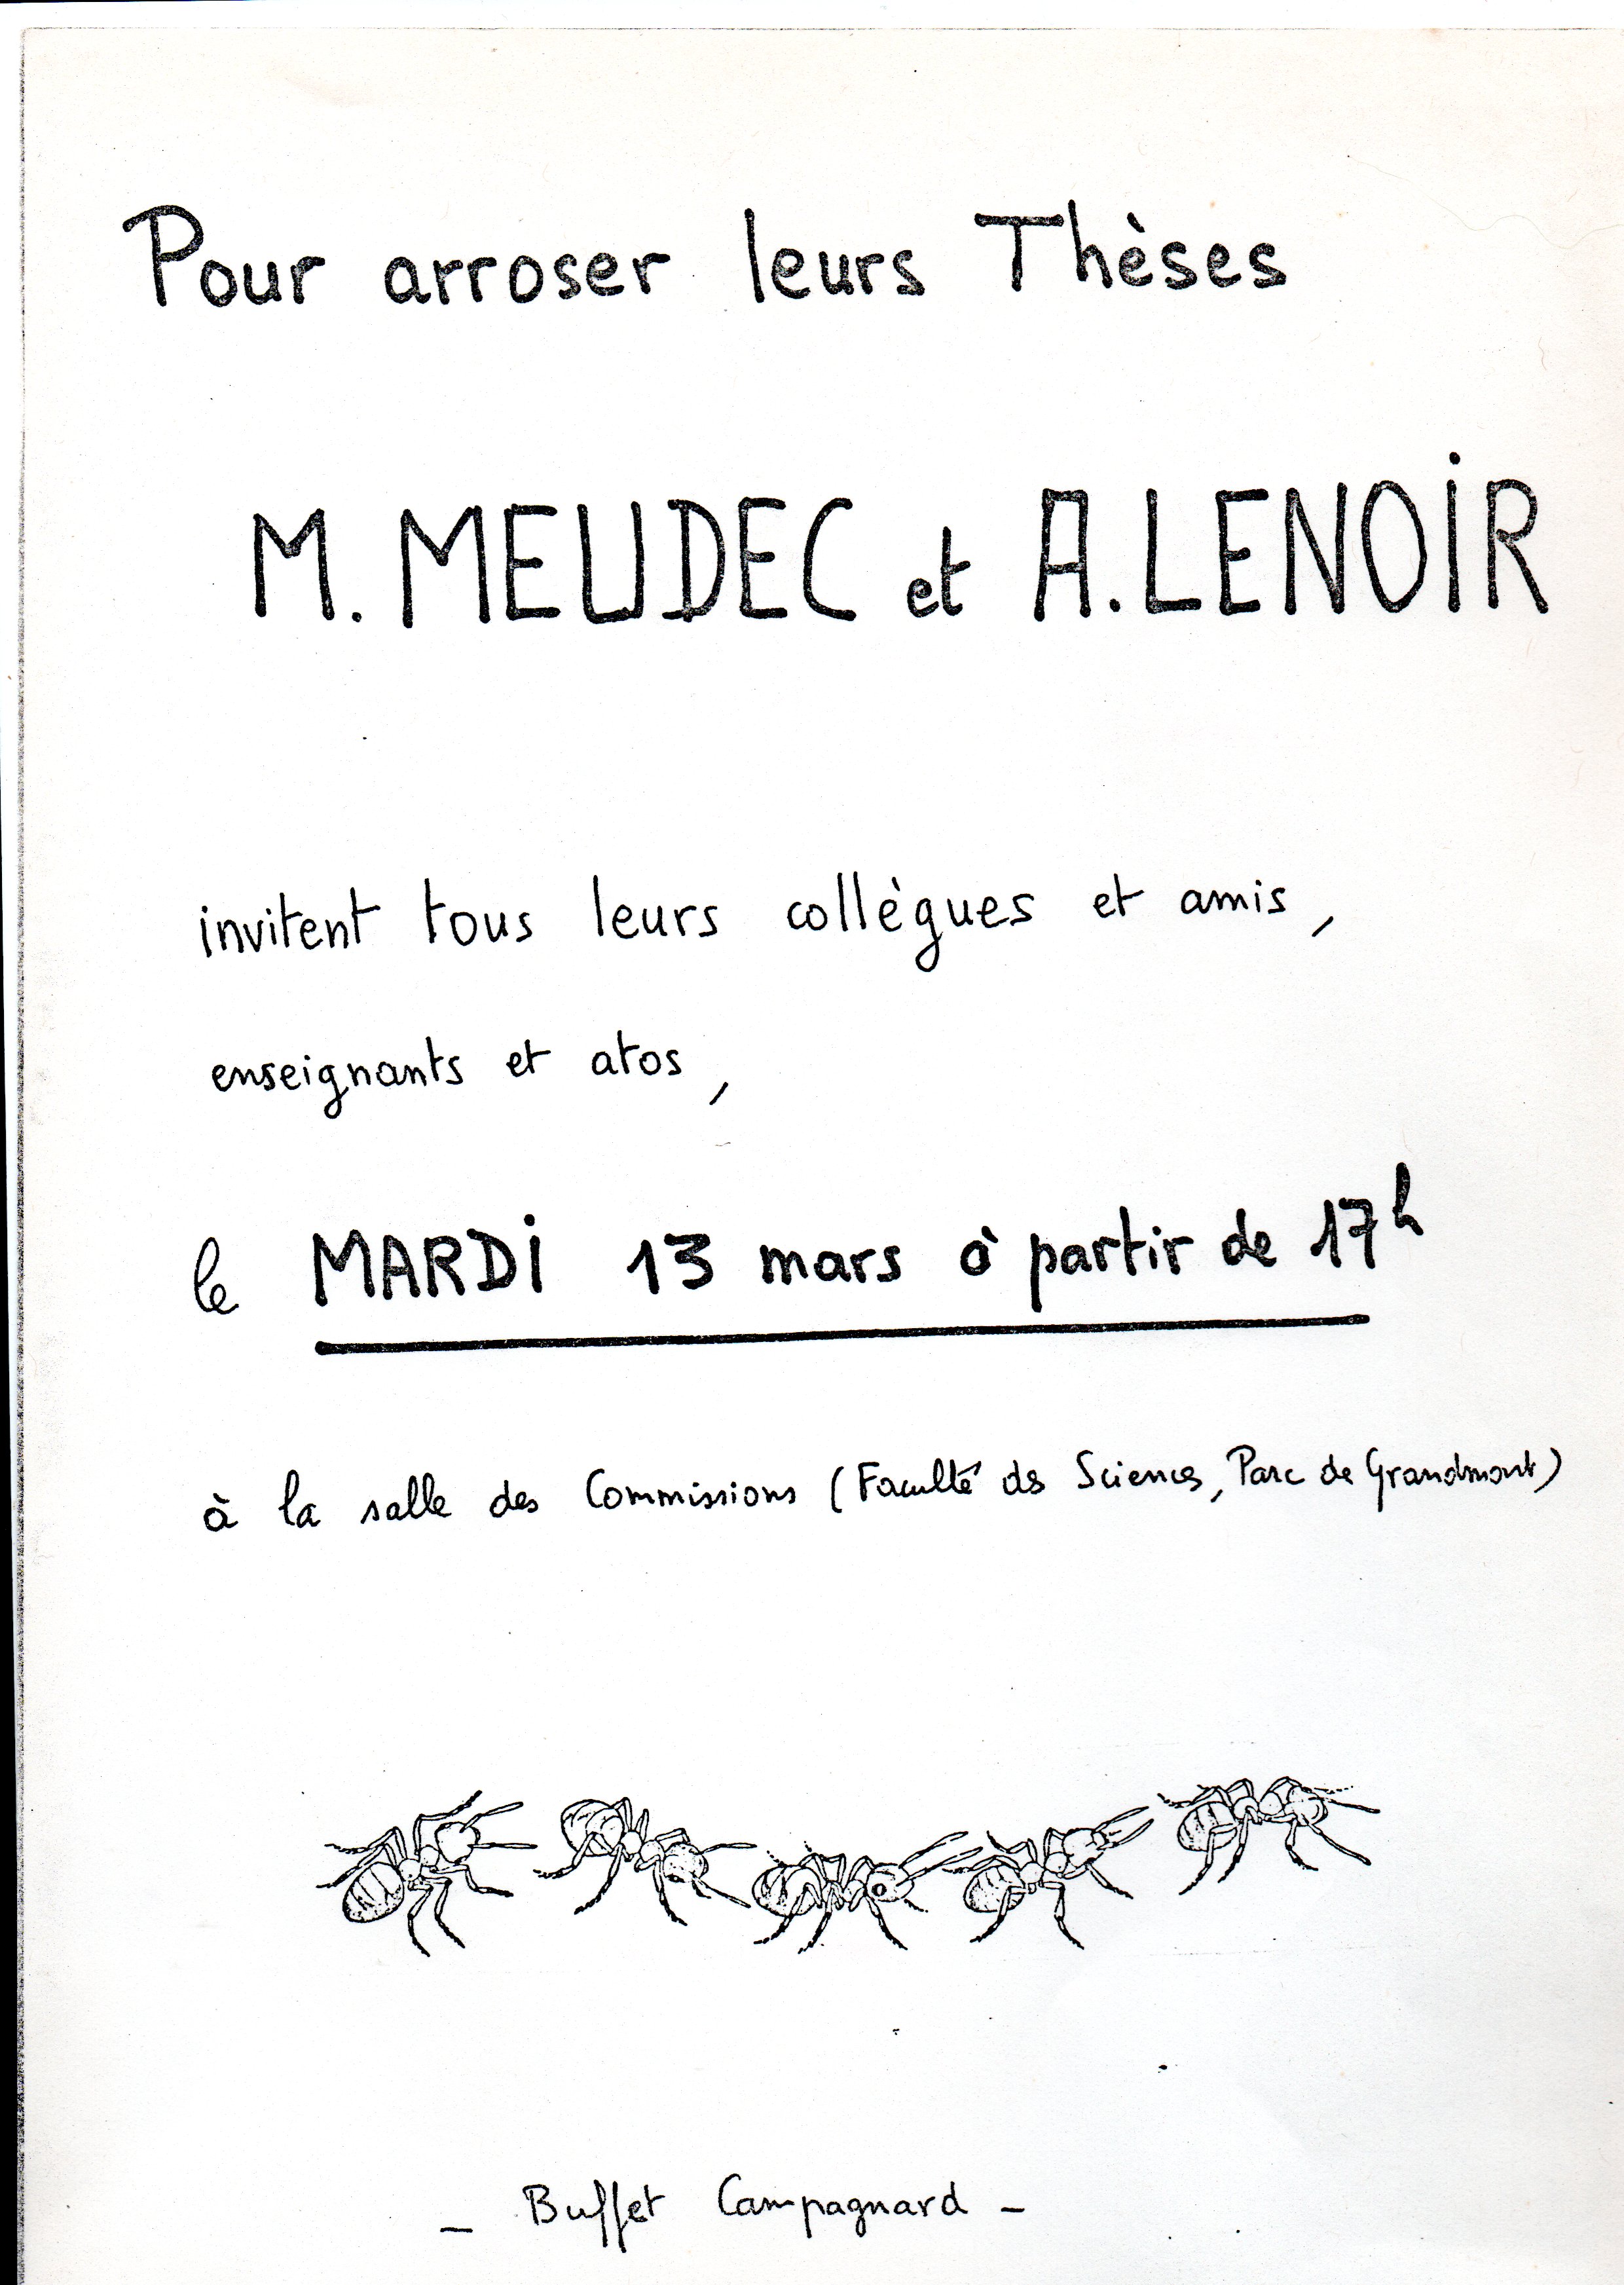 Pour arroser leurs Thèses
M. MEUDEC et A. LENOIR
invitent tous leurs collègues et amis,
enseignants et atos,
le MARDI 13 mars à partir de 17h
à la salle des Commissions (Faculté des Sciences, Parc de Grandmont)
_ Buffet Campagnard _